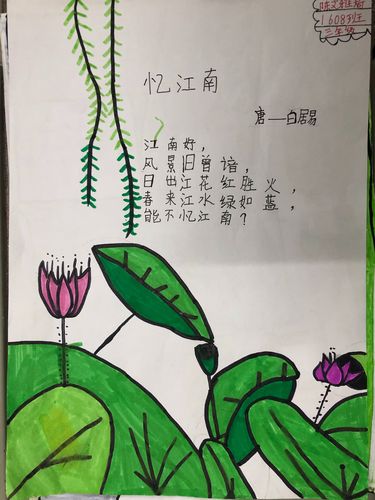 1608班
三年级
忆江南
唐—白居易
江南好，
风景旧曾谙，
日出江花红胜火，
春来江水绿如蓝，
能不忆江南？